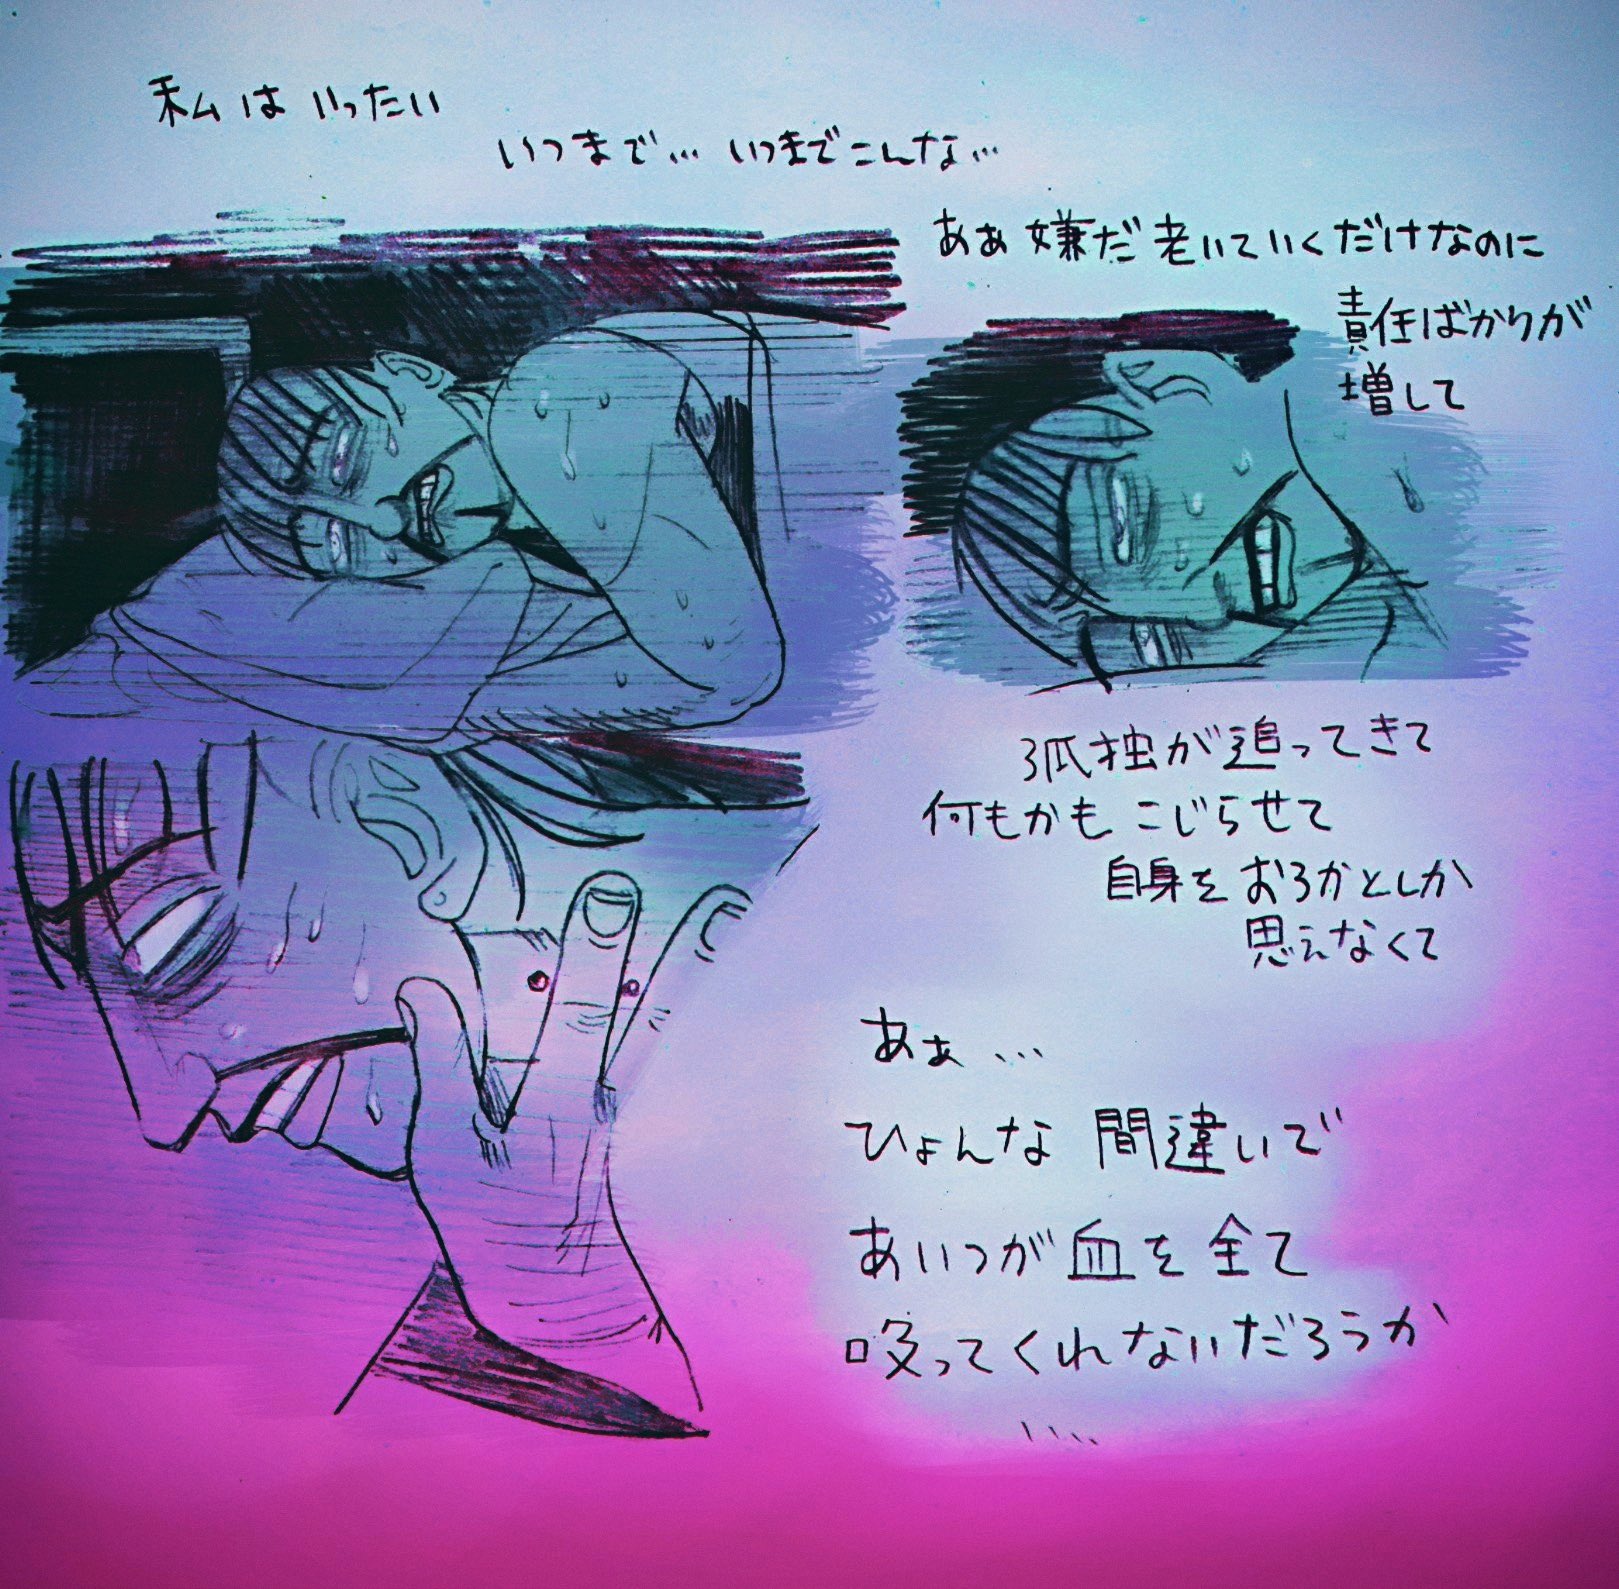 私はいったい
いつまで… いつまでこんな…
あぁ嫌だ 老いていくだけなのに
責任ばかりが
増して
孤独が追ってきて
何もかもこじらせて
自身をおろかとしか
思えなくて
あぁ…
ひょんな間違いで
あいつが血を全て
吸ってくれないだろうか
....